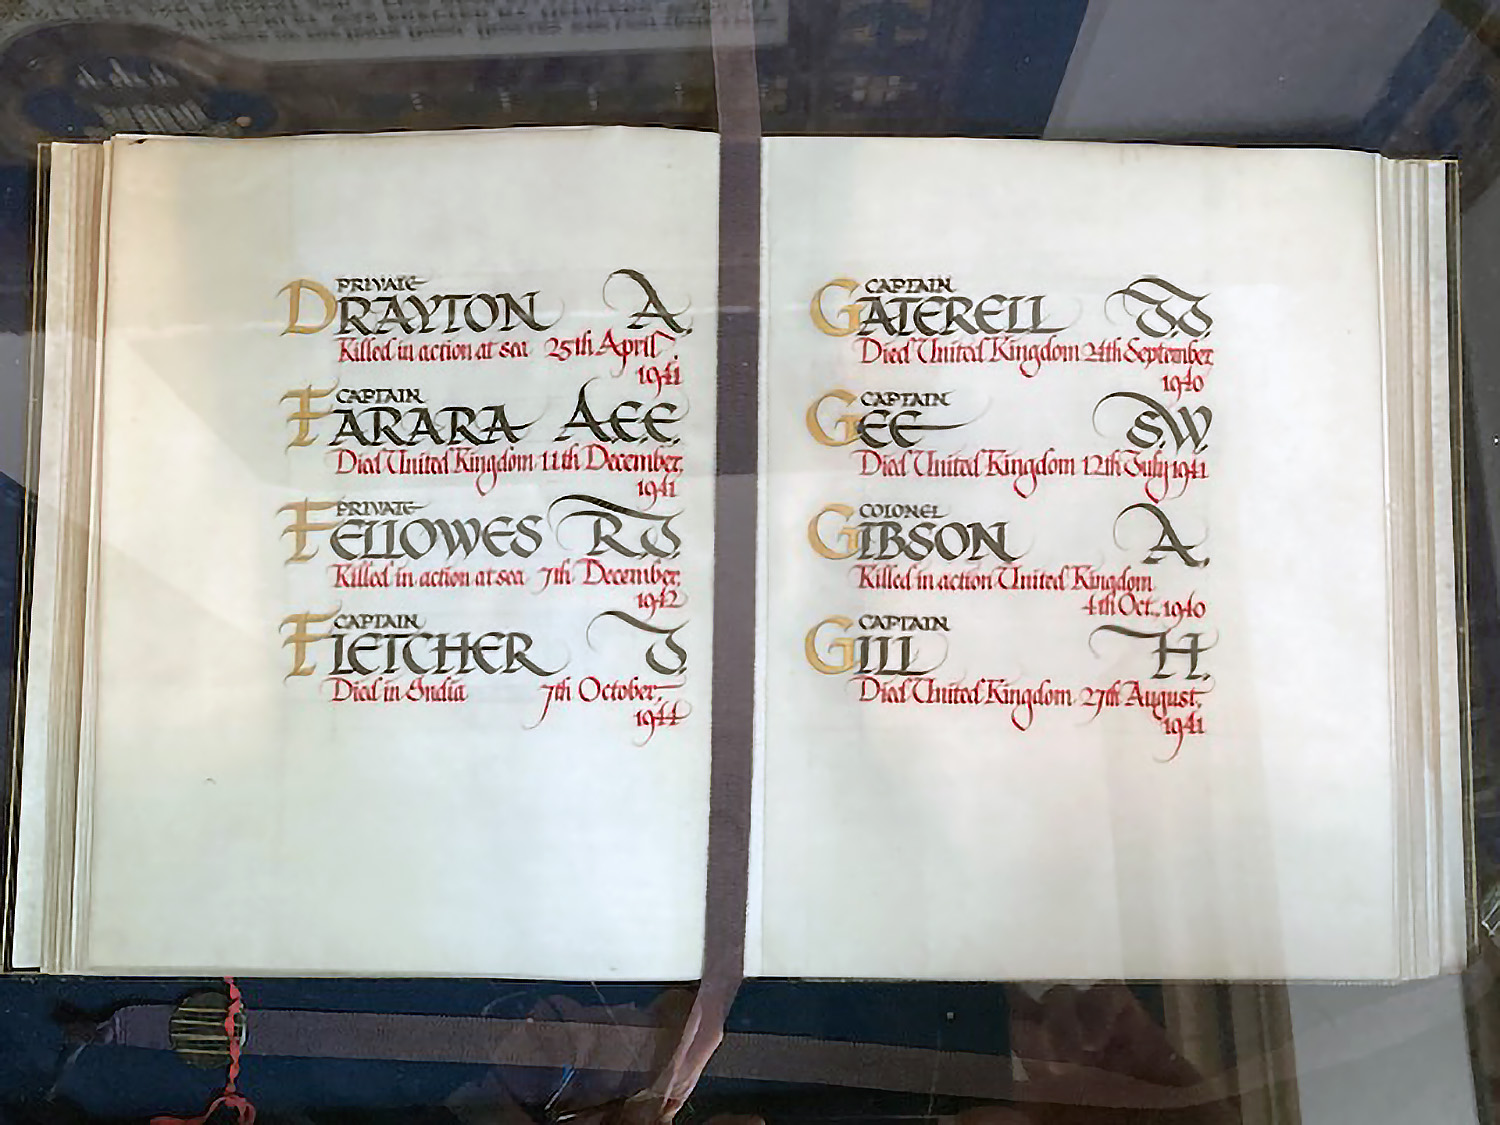 PRIVATE
DRAYTON A.
Killed in action at sea 25th April,
1941
CAPTAIN
FARARA A.E.E.
Died United Kingdom 11th December,
1941
PRIVATE
FELLOWES R.J.
Killed in action at sea 7th December,
1942
CAPTAIN
FLETCHER J.
Died in India 7th October,
1944
CAPTAIN
GATERELL J.J.
Died United Kingdom 24th September
1940
CAPTAIN
GEE S.W.
Died United Kingdom 12th July 1941
COLONEL
GIBSON A.
Killed in action United Kingdom
4th Oct., 1940
CAPTAIN
GILL H.
Died United Kingdom 27th August,
1941